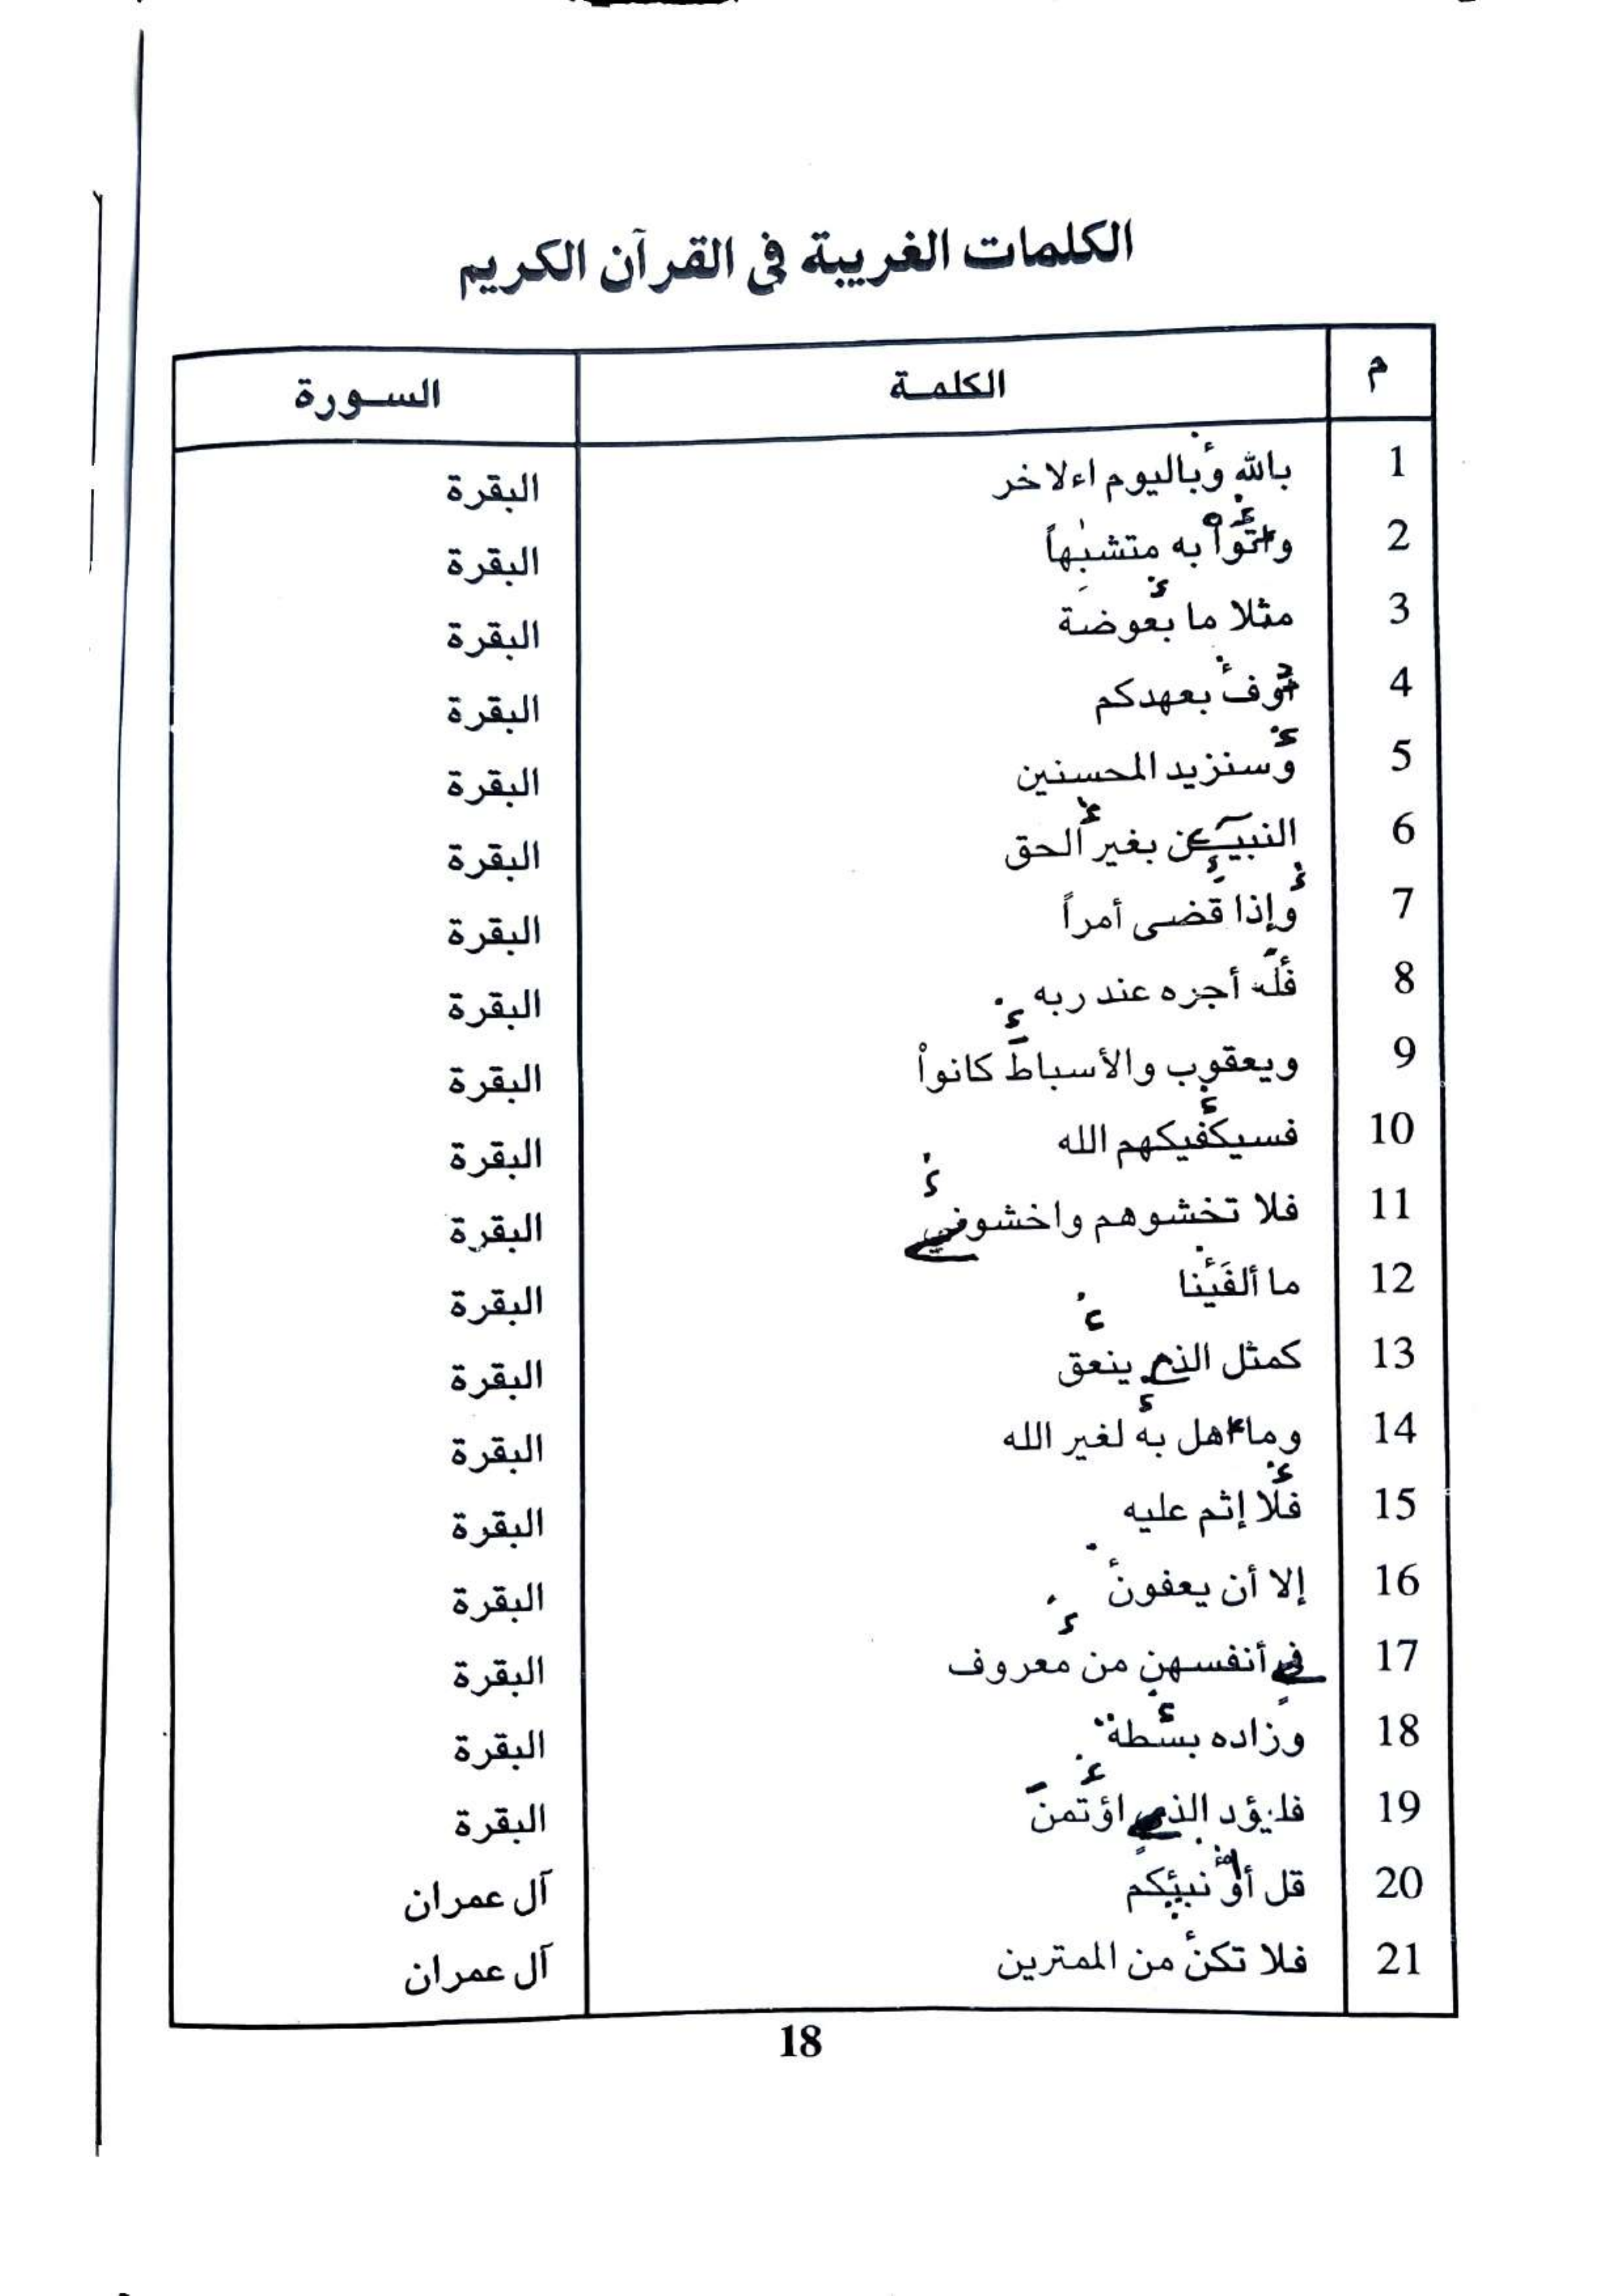 الكلمات الغريبة فى القرآن الكريم
م الكلمـة السـورة
1 بالله وباليوم اءلاخر البقرة
2 واتوا به متشبهاً البقرة
3 مثلا ما بعوضة البقرة
4 أوف بعهدكم البقرة
5 وسنزيد المحسنين البقرة
6 النبيـين بغير الحق البقرة
7 وإذا قضى أمراً البقرة
8 فله أجره عند ربه البقرة
9 ويعقوب والأسباط كانواْ البقرة
10 فسيكفيكهم الله البقرة
11 فلا تخشوهم واخشوني البقرة
12 ما ألفَيْنا البقرة
13 كمثل الذے ينعق البقرة
14 وما اهل به لغير الله البقرة
15 فلا إثم عليه البقرة
16 إلا أن يعفون البقرة
17 فے أنفسهن من معروف البقرة
18 وزاده بسطة البقرة
19 فليؤد الذے اؤتمن البقرة
20 قل أو نبيكم آل عمران
21 فلا تكن من الممترين آل عمران
18